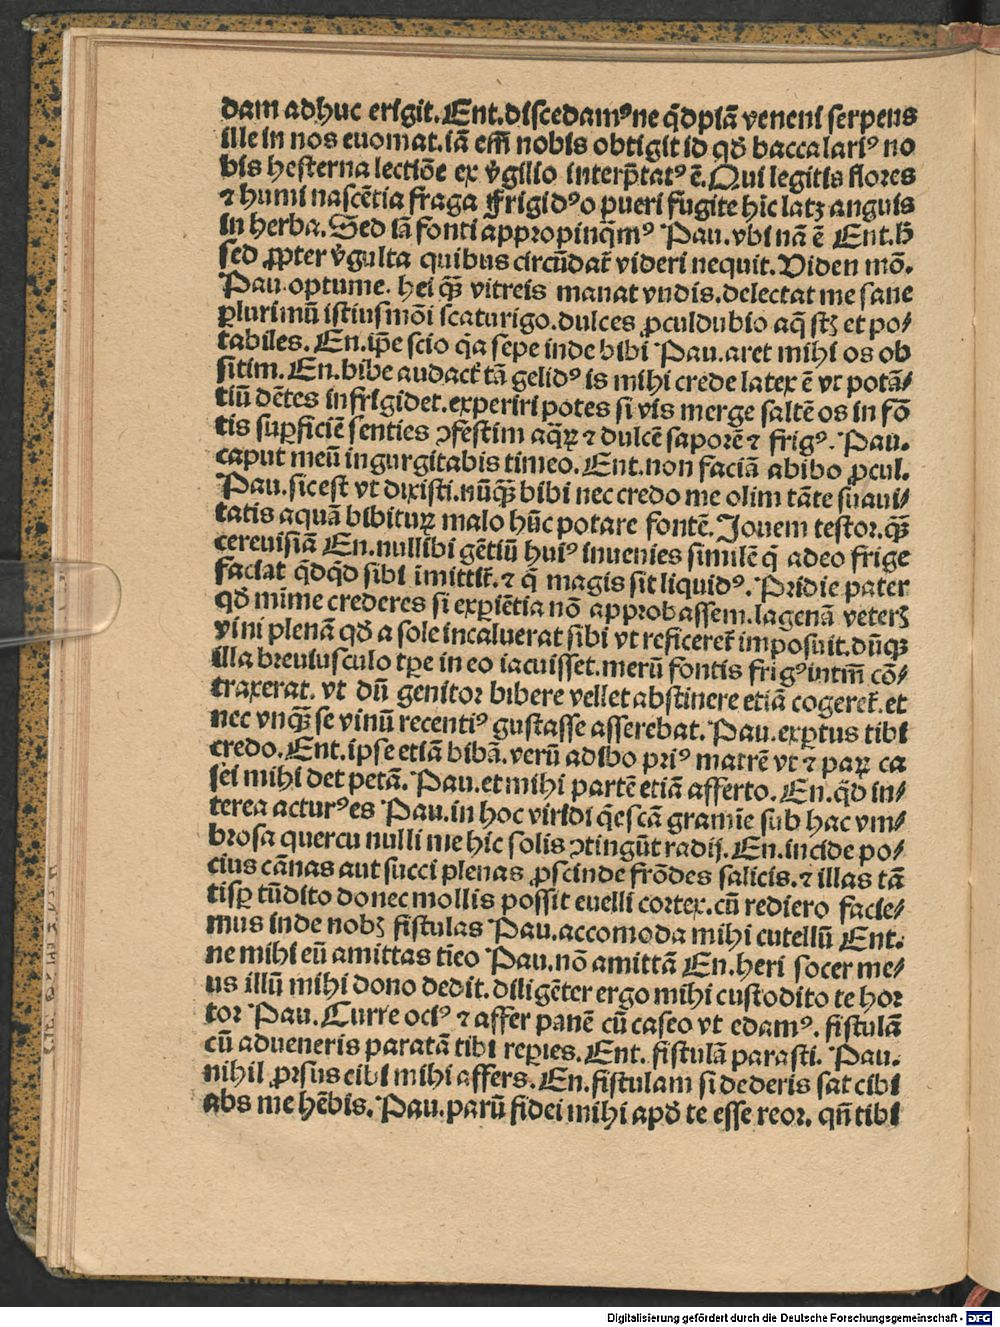 dam adhuc erigit. Ent. discedamꝰ ne qͥdpiā veneni serpens
ille in nos euomat. iā em̄ nobis obtigit id qđ baccalariꝰ no
bis hesterna lectiōe ex v̓gilio interp̄tatꝰ ē. Qui legitis flores
⁊ humi nascētia fraga Frigidꝰ o pueri fugite hīc latꝫ anguis
in herba. Sed iā fonti appropinq̄mꝰ Pau. vbi nā ē Ent. ħ
sed ꝓpter v̓gulta quibus circūdat᷑ videri nequit. Viden mō.
Pau. optume. hei qꝫ̄ vitreis manat vndis. delectat me sane
plurimū istiusmōi scaturigo. dulces ꝓculdubio aq̄ st̄ꝫ et po⸗
tabiles. En. ip̄e scio qͣ sepe inde bibi Pau. aret mihi os ob
sitim. En. bibe audact᷑ tā gelidꝰ is mihi crede latex ē vt potā⸗
tiū dētes infrigidet. experiri potes si vis merge saltē os in fō
tis suꝑficiē senties ↄfestim aq̄ꝝ ⁊ dulcē saporē ⁊ frigꝰ. Pau.
caput meū ingurgitabis timeo. Ent. non faciā abibo ꝓcul.
Pau. sic est vt dixisti. nūqꝫ̄ bibi nec credo me olim tāte suaui⸗
tatis aquā bibituꝝ malo hūc potare fontē. Jouem testor. qꝫ̄
cereuisiā En. nullibi gētiū huiꝰ inuenies similē qͥ adeo frige
faciat qͥdqͥd sibi īmittit᷑. ⁊ qͥ magis sit liquidꝰ. Pridie pater
qđ mīme crederes si exꝑiētia nō approbassem. lagenā veterꝫ
vini plenā qđ a sole incaluerat sibi vt reficeret᷑ imposuit. dūqꝫ
illa breuiusculo tꝑe in eo iacuisset. merū fontis frigꝰ intm̄ cō⸗
traxerat. vt dū genitor bibere vellet abstinere etiā cogeret᷑. et
nec vnqꝫ̄ se vinū recentiꝰ gustasse asserebat. Pau. exꝑtus tibi
credo. Ent. ipse etiā bibā. verū adibo priꝰ matrē vt ⁊ paꝝ ca
sei mihi det petā. Pau. et mihi partē etiā afferto. En. qͥd in⸗
terea acturꝰ es Pau. in hoc viridi qͥescā gramīe sub hac vm⸗
brosa quercu nulli me hic solis ↄtingūt radij. En. incide po⸗
cius cānas aut succi plenas ꝓscinde frōdes salicis. ⁊ illas tā
tisꝑ tūdito donec mollis possit euelli cortex. cū rediero facie⸗
mus inde nobꝫ fistulas Pau. accomoda mihi cutellū Ent.
ne mihi eū amittas tīeo Pau. nō amittā En. heri socer me⸗
us illū mihi dono dedit. diligēter ergo mihi custodito te hor
tor Pau. Curre ociꝰ ⁊ affer panē cū caseo vt edamꝰ. fistulā
cū adueneris paratā tibi reꝑies. Ent. fistulā parasti. Pau.
nihil ꝓrsus cibi mihi affers. En. fistulam si dederis sat cibi
abs me hēbis. Pau. parū fidei mihi apđ te esse reor. qn̄ tibi
Digitalisierung gefördert durch die Deutsche Forschungsgemeinschaft - DFG